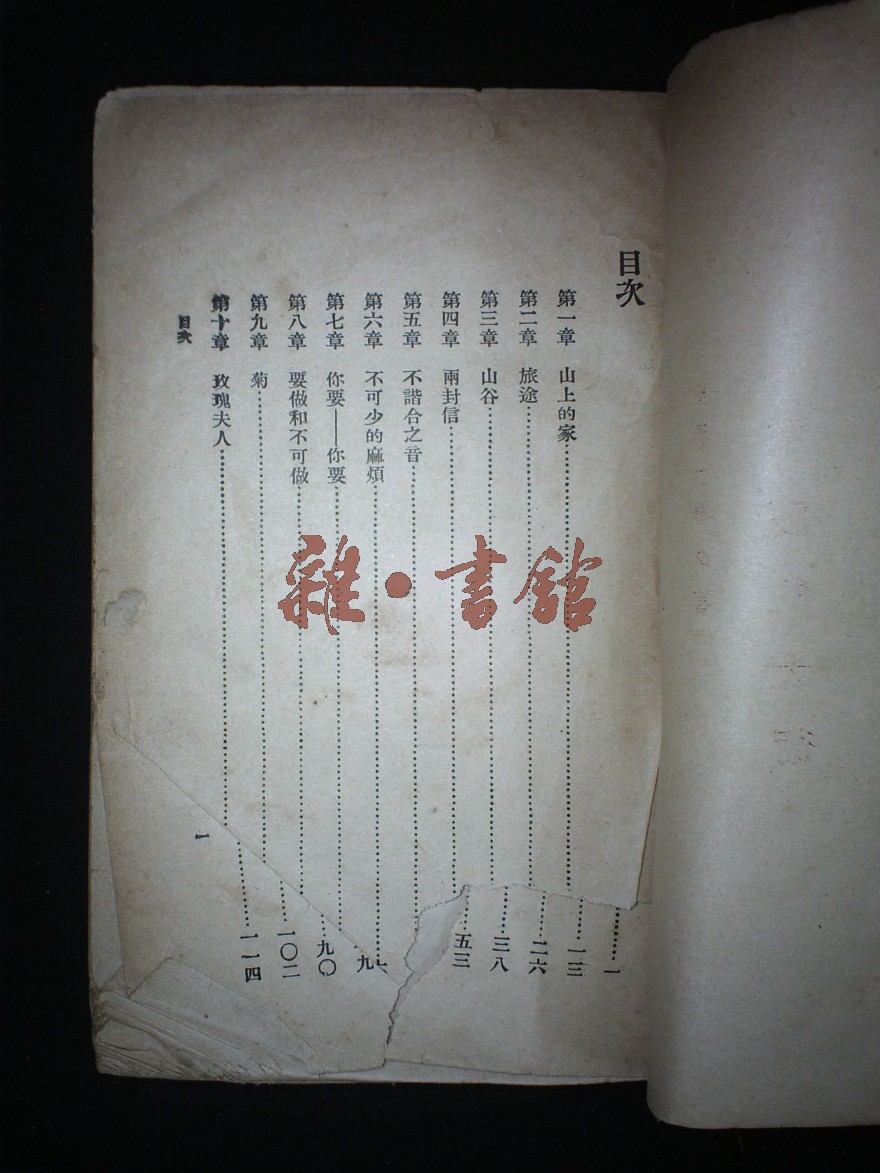 目次
第一章 山上的家……一
第二章 旅途……一三
第三章 山谷……二六
第四章 兩封信……三八
第五章 不諧合之音……五三
第六章 不可少的麻煩……
第七章 你要——你要……九
第八章 要做和不可做……九〇
第九章 菊……一〇二
第十章 玫瑰夫人……一一四
目次
一
雜·書館